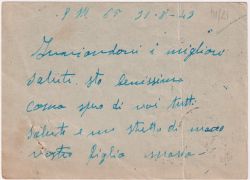 P M 65 31-8-43
Inviandovi i migliori
saluti. sto benissimo
cosi spero di voi tutti
saluti e un stretto di mano
vostro figlio Mario